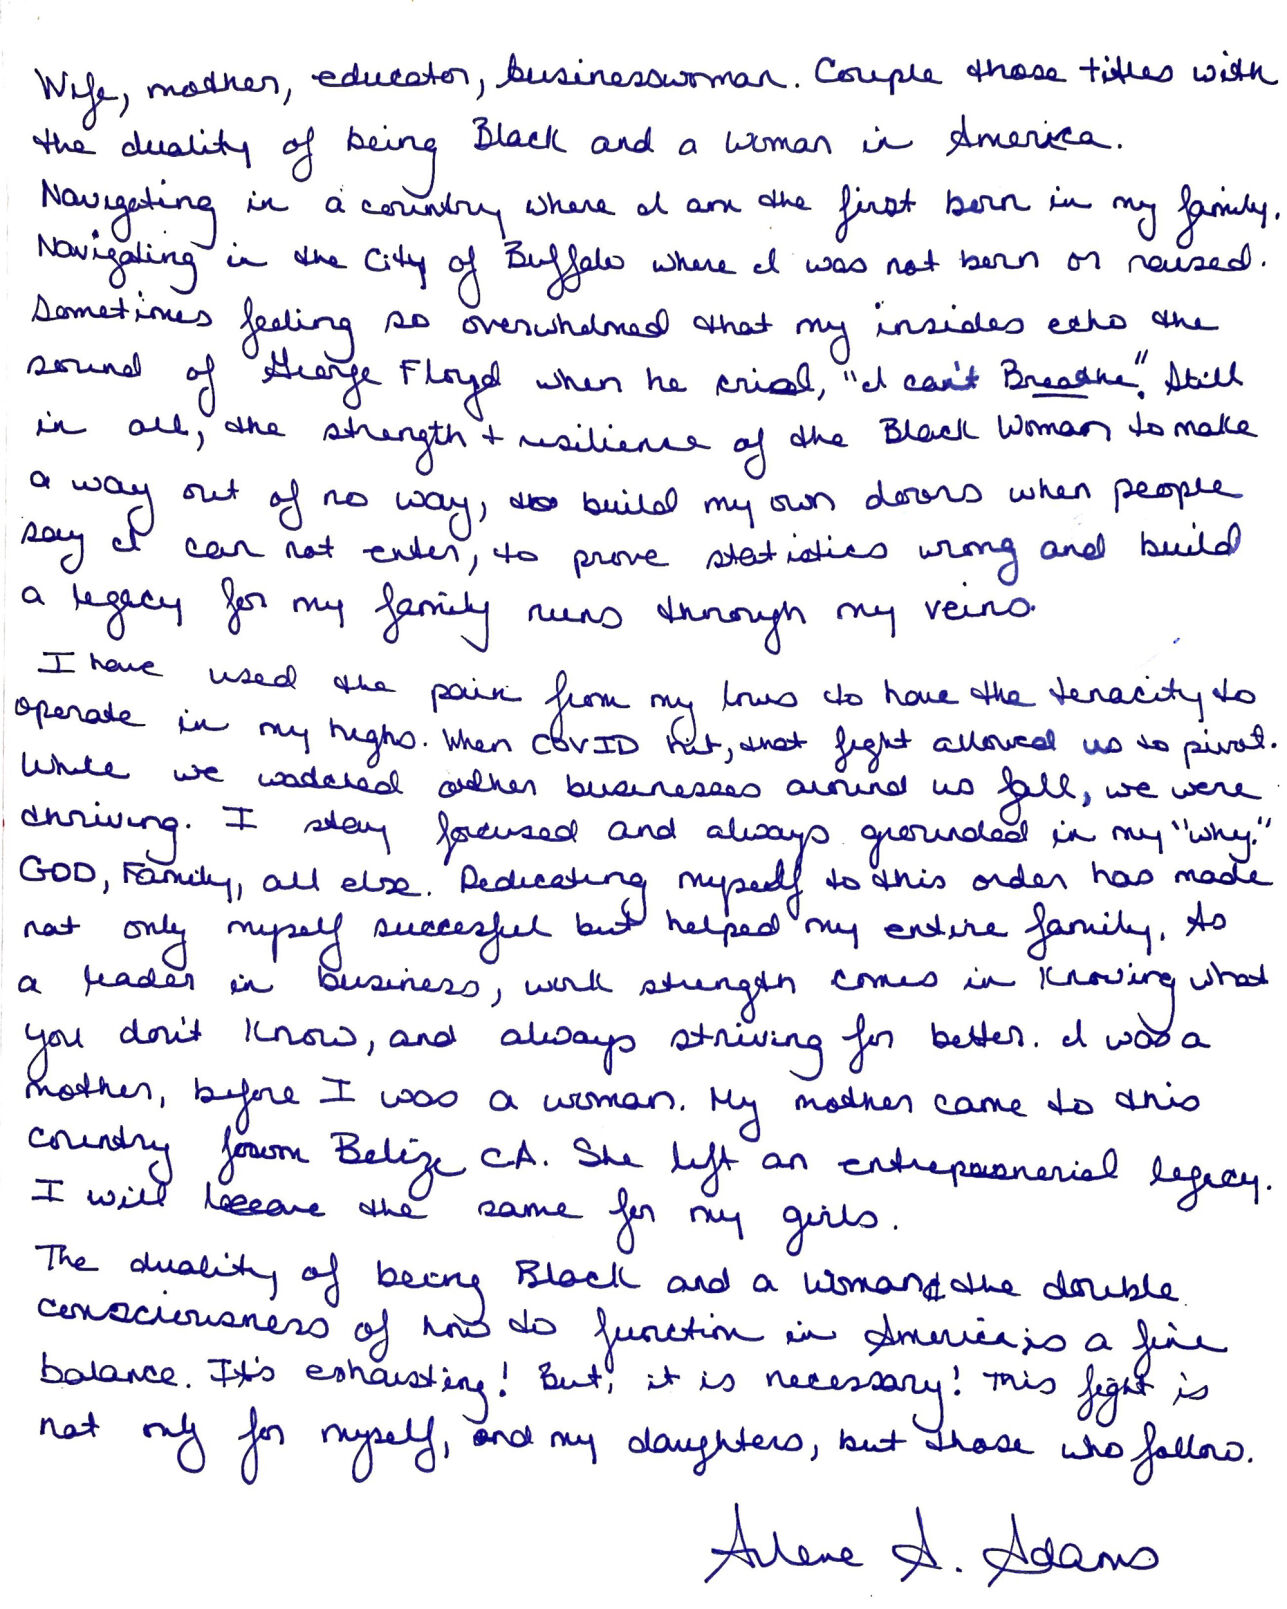 Wife, mother, educator, businesswoman. Couple those titles with
the duality of being Black and a woman in America.
Navigating in a country where I am the first born in my family.
Navigating in the City of Buffalo where I was not born or raised.
Sometimes feeling so overwhelmed that my insides echo the
sound of George Floyd when he cried, "I can't Breathe". Still
in all, the strength + resilience of the Black Woman to make
a way out of no way, to build my own doors when people
say I can not enter, to prove statistics wrong and build
a legacy for my family runs through my veins.
I have used the pain from my lows to have the tenacity to
operate in my highs. When COVID hit, that fight allowed us to pivot.
While we watched other businesses around us fall, we were
thriving. I stay focused and always grounded in my "why."
GOD, Family, all else. Dedicating myself to this order has made
not only myself succesful but helped my entire family. As
a leader in business, work strength comes in knowing what
you don't know, and always striving for better. I was a
mother, before I was a woman. My mother came to this
country from Belize CA. She left an entreprenerial legacy.
I will leave the same for my girls.
The duality of being Black and a woman & the double
consciousness of how to function in America is a fine
balance. It's exhausting! But, it is necessary! This fight is
not only for myself, and my daughters, but those who follow.
Arlene A. Adams